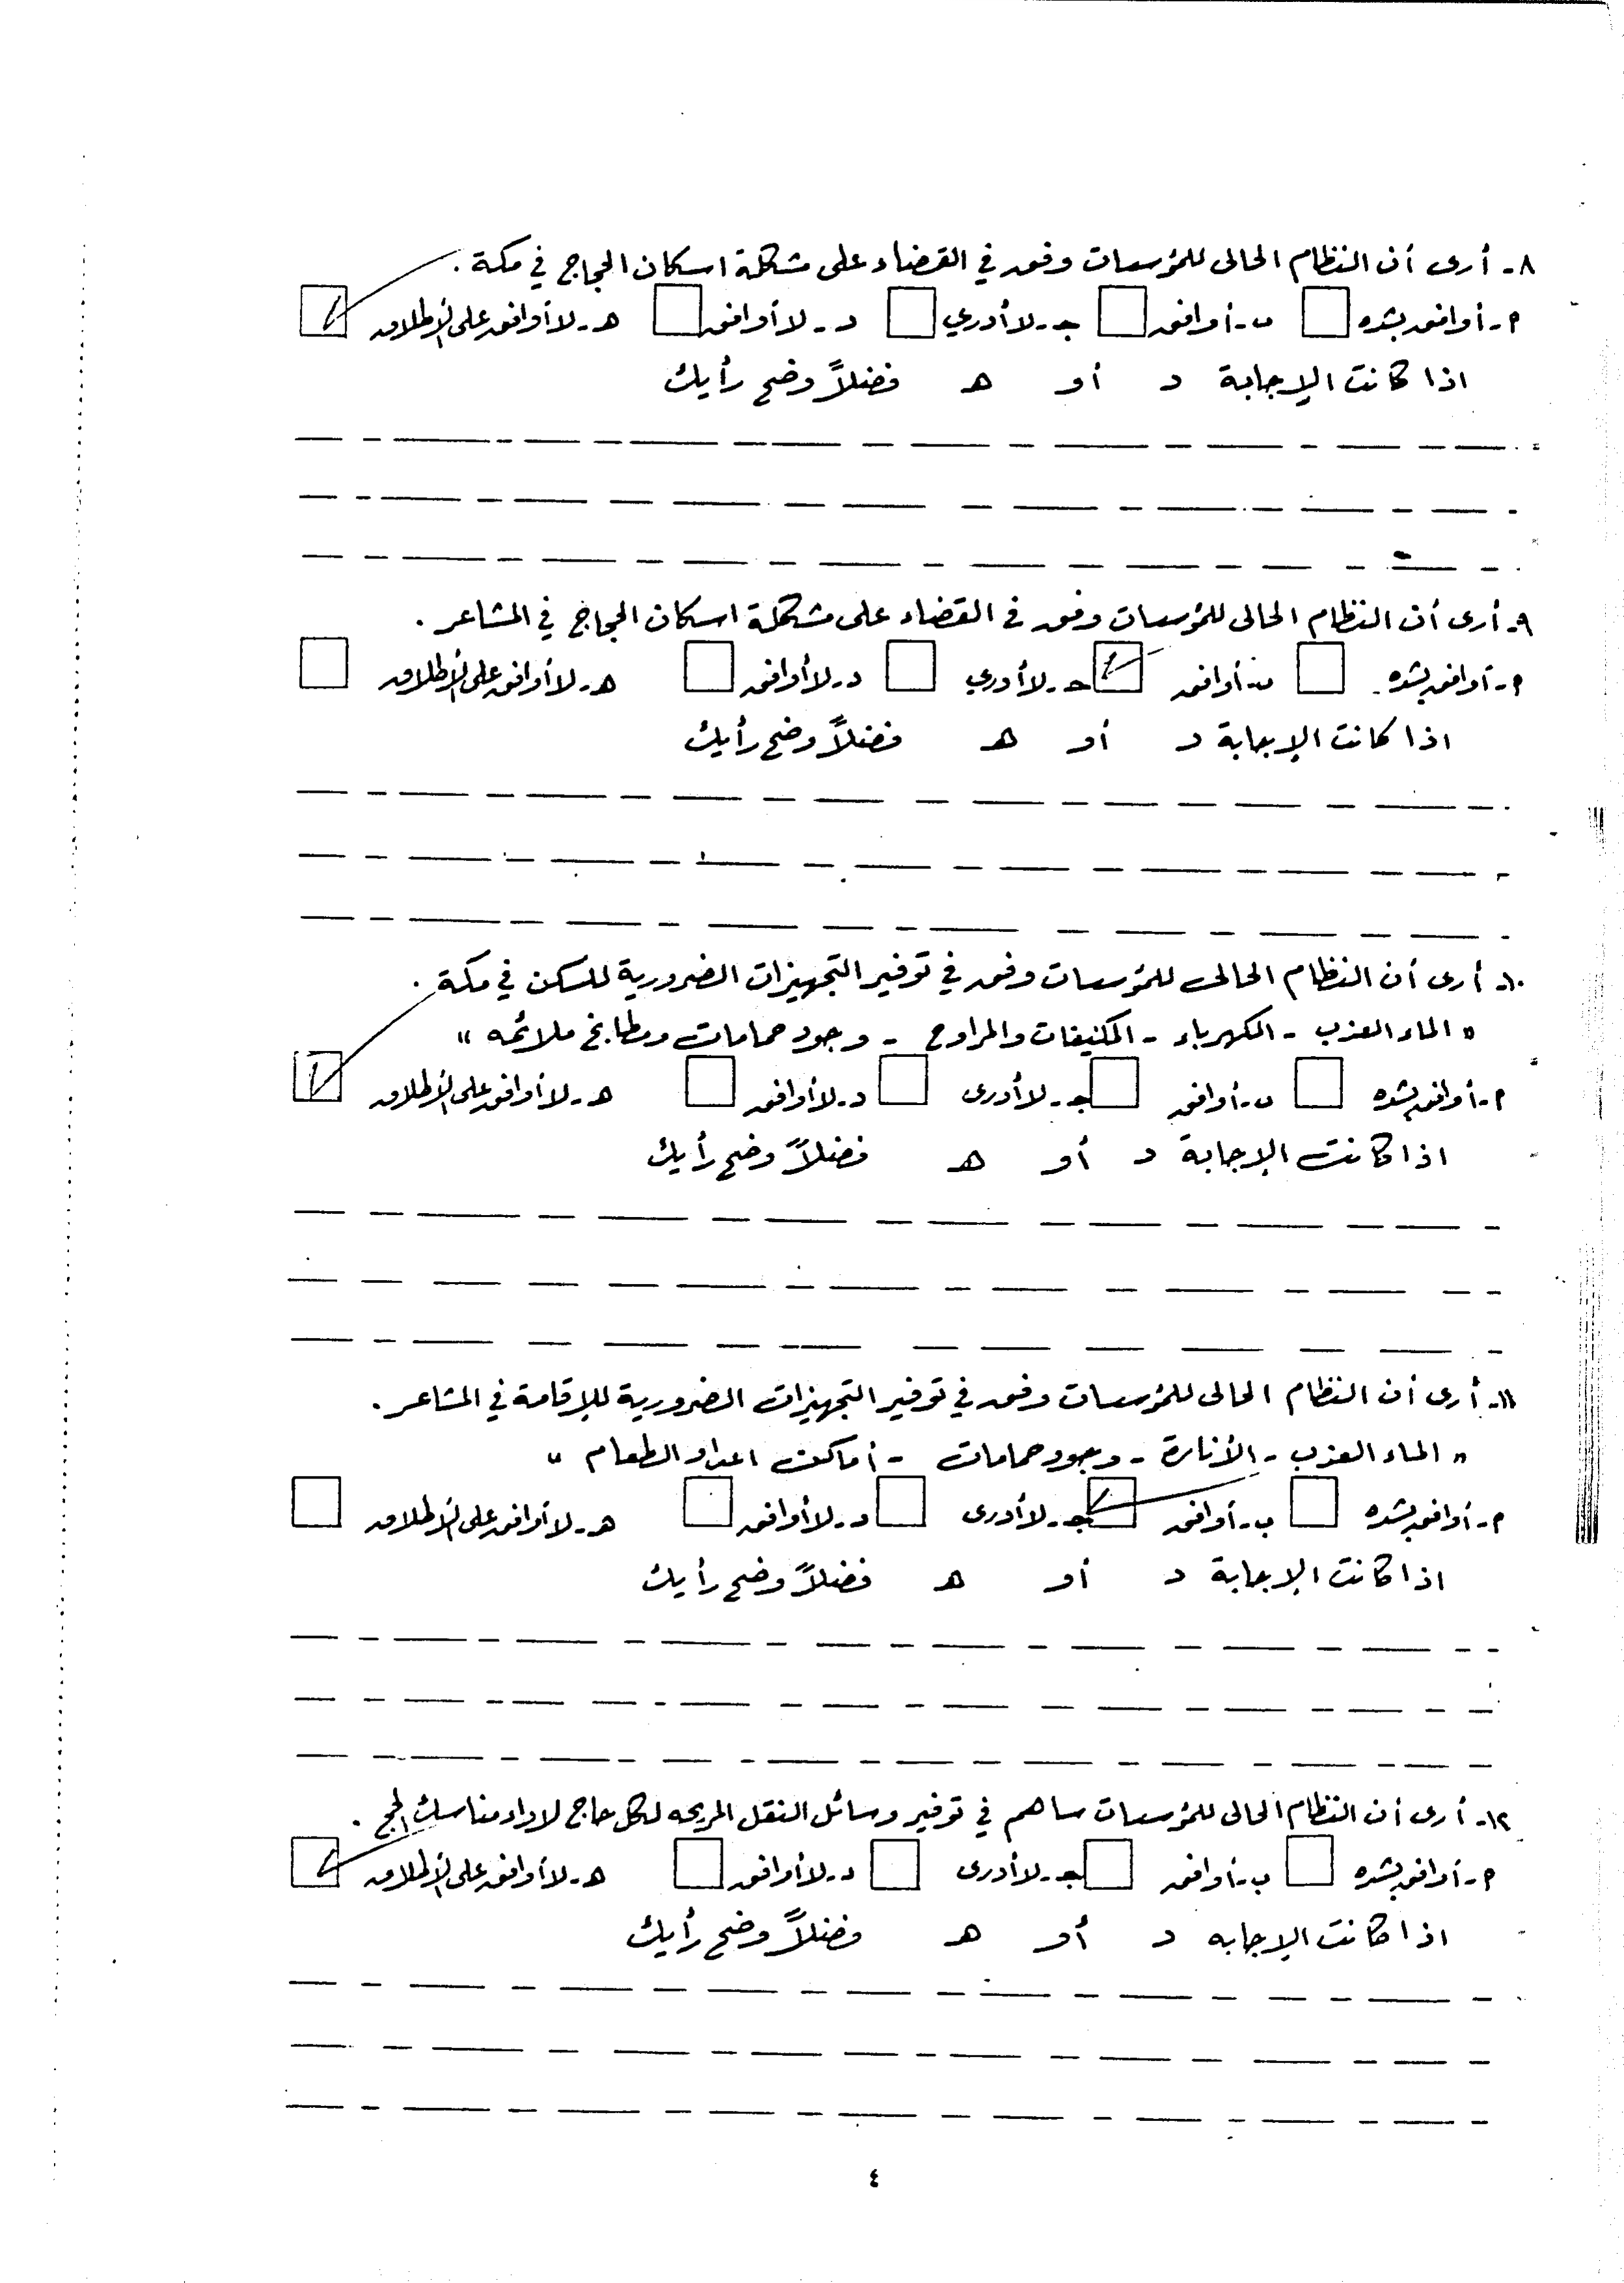 ٨- أرى أن النظام الحالى للمؤسسات وفق في القضاء على مشكلة اسكان الحجاج في مكة .
م- أوافق بشده ب- أوافق جـ- لا أدري د- لا أوافق هـ- لا أوافق على الأطلاق
اذا كانت الإجابة د أو هـ فضلاً وضح رأيك
٩- أرى أن النظام الحالى للمؤسسات وفق في القضاء على مشكلة اسكان الحجاج في المشاعر .
م- أوافق بشده ب- أوافق جـ- لا أدري د- لا أوافق هـ- لا أوافق على الأطلاق
اذا كانت الإجابة د أو هـ فضلاً وضح رأيك
١٠- أرى أن النظام الحالى للمؤسسات وفق في توفير التجهيزات الضرورية للسكن في مكة .
" الماء العذب - الكهرباء - المكيفات والمراوح - وجود حمامات ومطابخ ملائمه "
م- أوافق بشده ب- أوافق جـ- لا أدرى د- لا أوافق هـ- لا أوافق على الأطلاق
اذا كانت الإجابة د أو هـ فضلاً وضح رأيك
١١- أرى أن النظام الحالى للمؤسسات وفق في توفير التجهيزات الضرورية للإقامة في المشاعر .
" الماء العذب - الأنارة - وجود حمامات - أماكن اعداد الطعام "
م- أوافق بشده ب- أوافق جـ- لا أدرى د- لا أوافق هـ- لا أوافق على الأطلاق
اذا كانت الإجابة د أو هـ فضلاً وضح رأيك
١٢- أرى أن النظام الحالى للمؤسسات ساهم في توفير وسائل النقل المريحه لكل حاج لاداء مناسك الحج .
م- أوافق بشده ب- أوافق جـ- لا أدرى د- لا أوافق هـ- لا أوافق على الأطلاق
اذا كانت الإجابه د أو هـ فضلاً وضح رأيك
٤